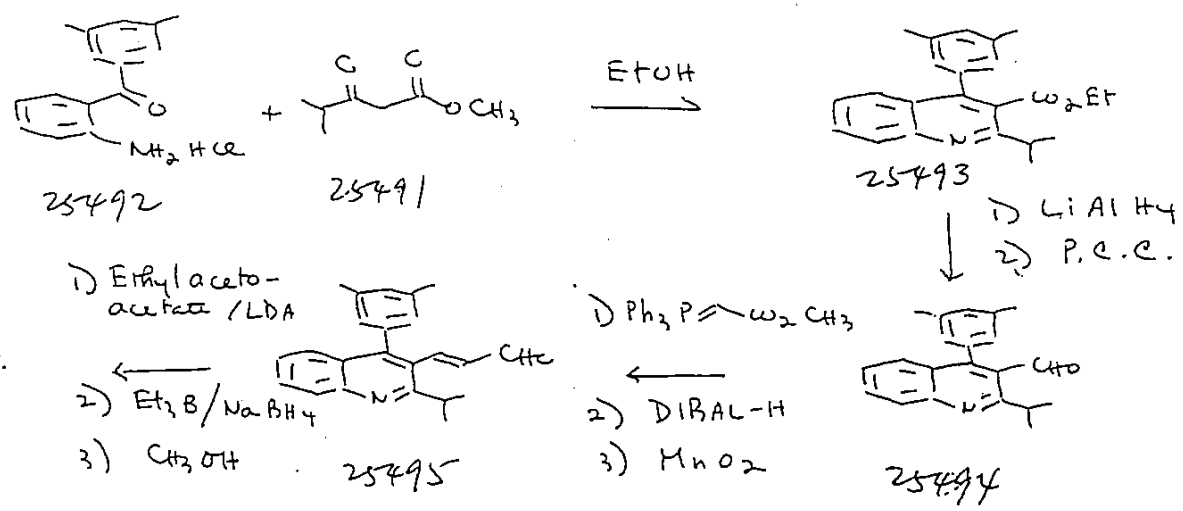 O
NH2 HCl
25492
+
O O
OCH3
25491
EtOH
CO2Et
N
25493
1) LiAlH4
2) P.C.C.
CHO
N
25494
1) Ph3P=CO2CH3
2) DIBAL-H
3) MnO2
CHO
N
25495
1) Ethylaceto-
acetate/LDA
2) Et3B/NaBH4
3) CH3OH